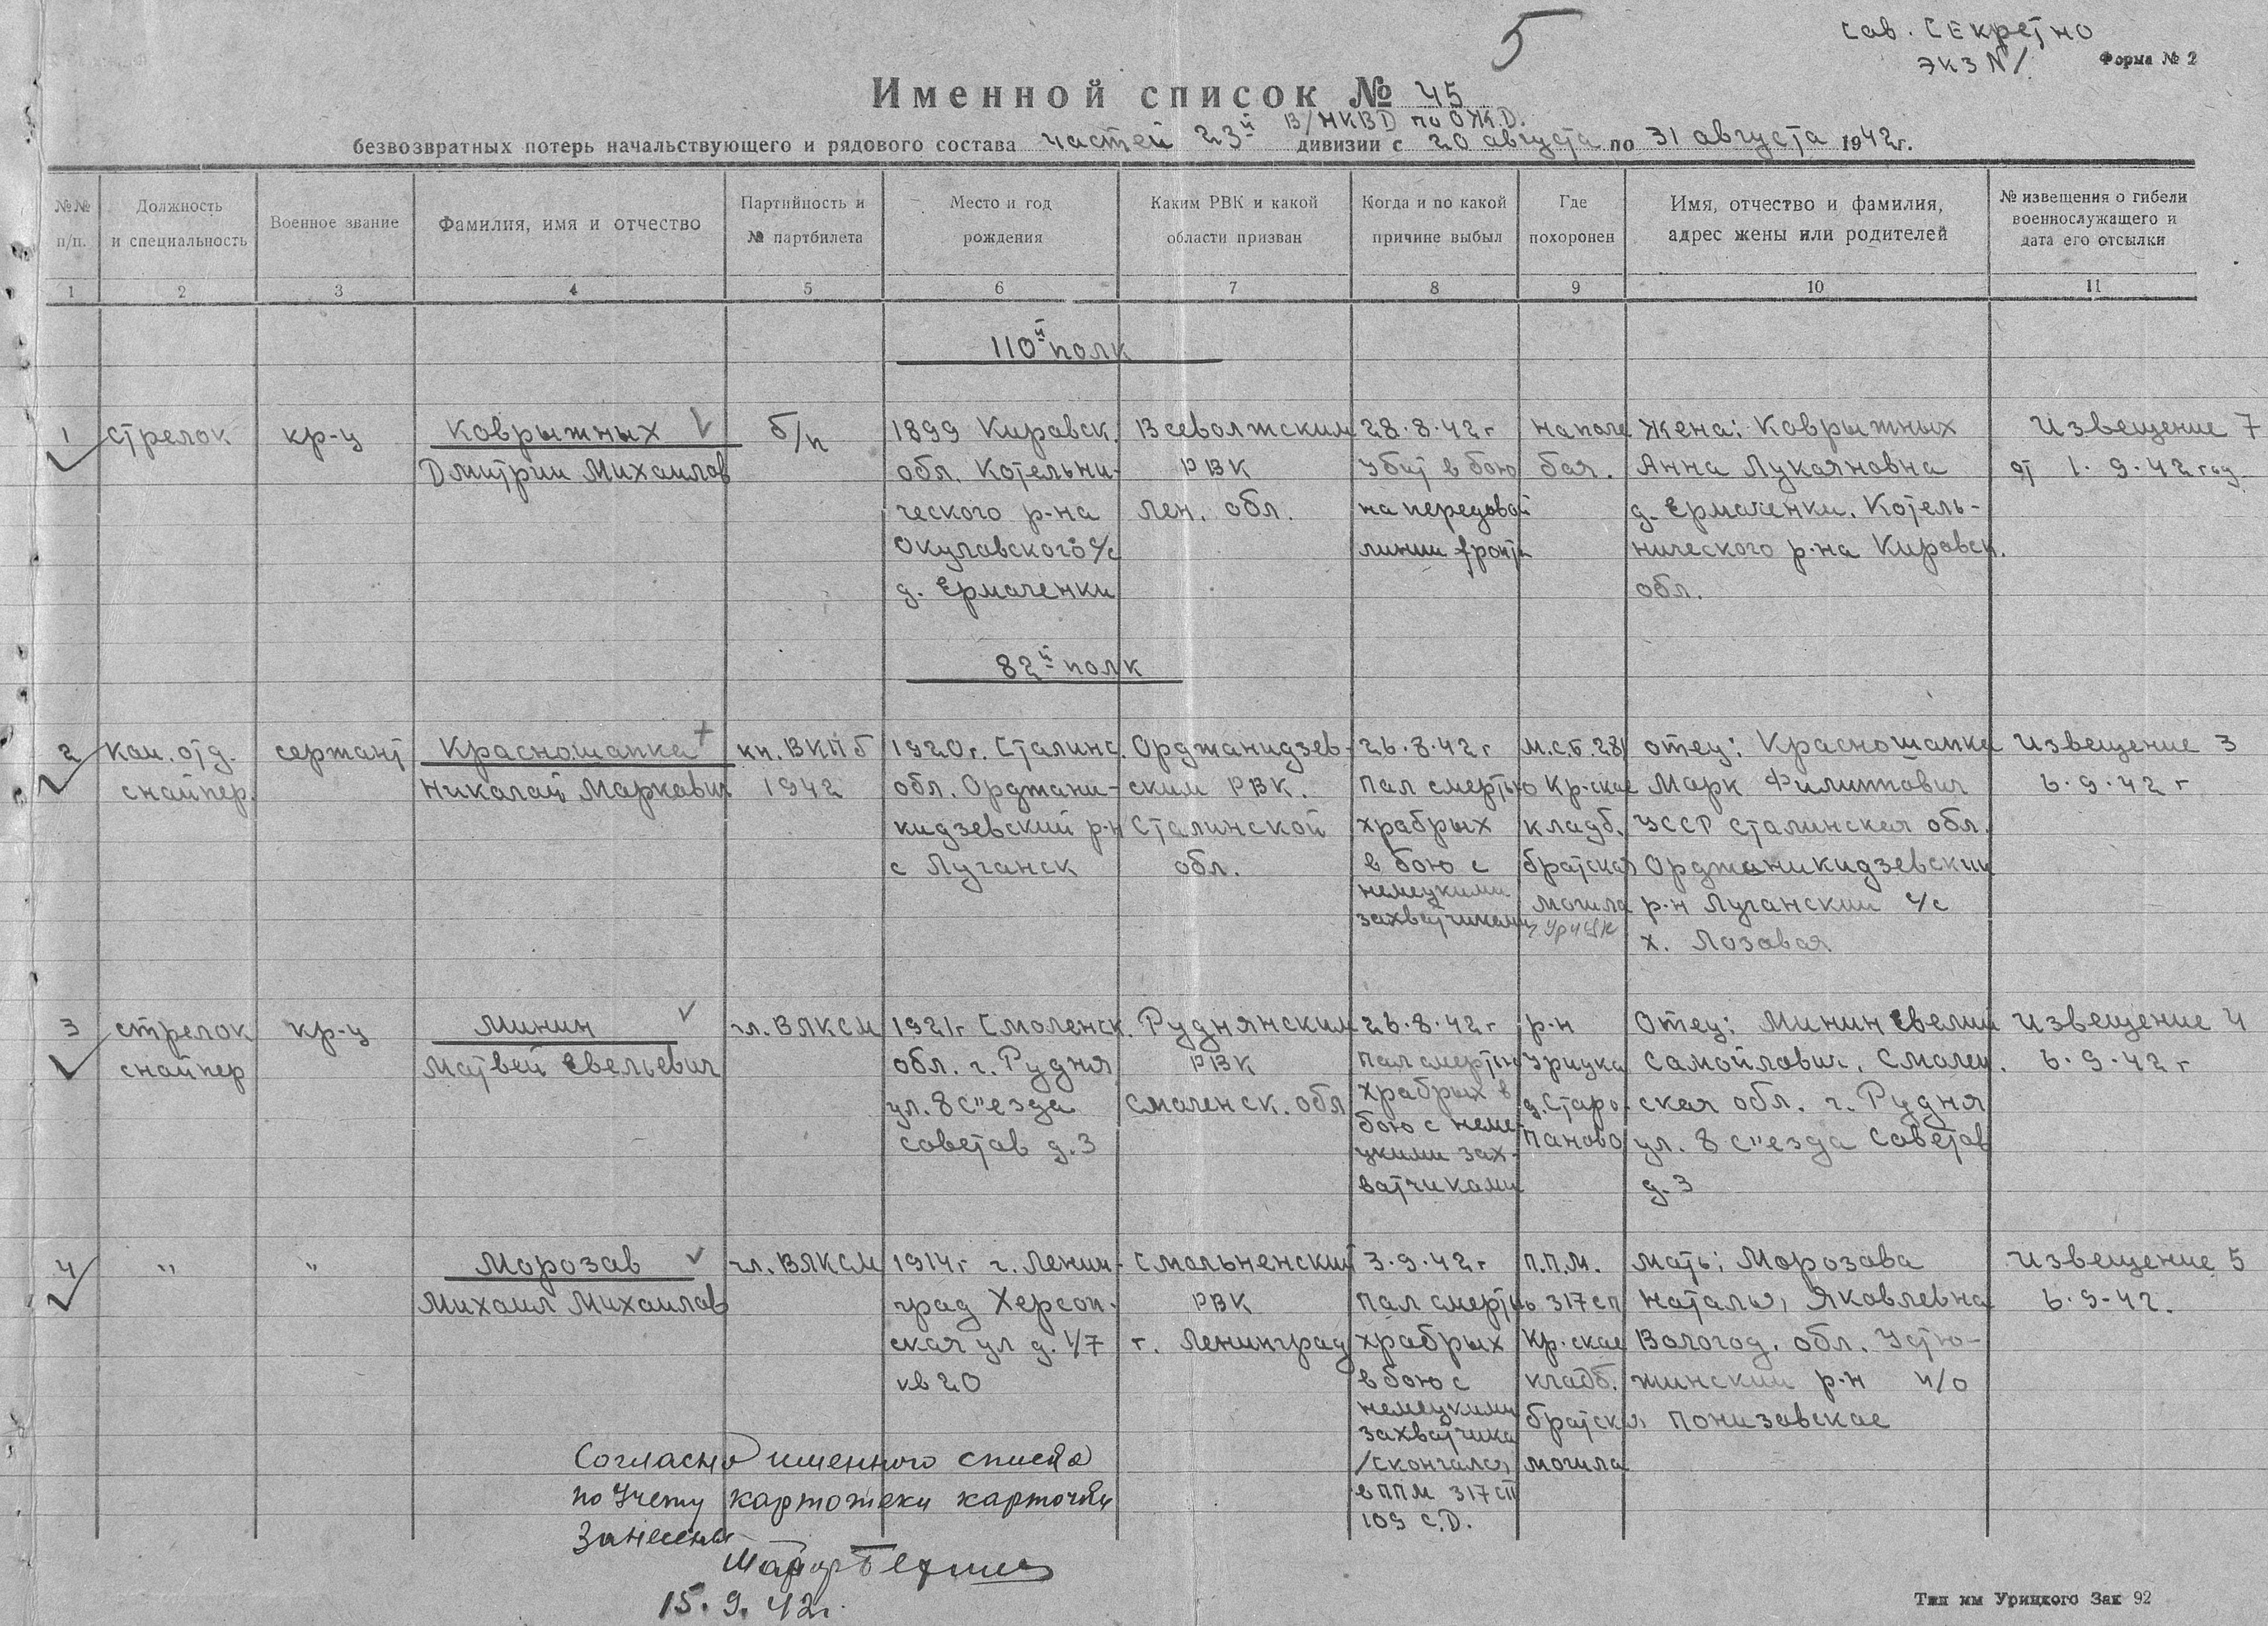 5
Сов. Секретно
экз №1
Форма № 2
Именной список № 45
В/НКВД по О.Ж.Д.
безвозвратных потерь начальствующего и рядового состава частей 23й дивизии с 20 августа по 31 августа 1942г.
№№ п/п.
Должность и специальность
Военное звание
Фамилия, имя и отчество
Партийность и № партбилета
Место и год рождения
Каким РВК и какой области призван
Когда и по какой причине выбыл
Где похоронен
Имя, отчество и фамилия, адрес жены или родителей
№ извещения о гибели военнослужащего и дата его отсылки
1 2 3 4 5 6 7 8 9 10 11
110й полк
1 стрелок кр-ц Коврыжных б/п 1899 Кировск. Всеволжским 28.8.42г на поле Жена: Коврыжных Извещение 7
Дмитрий Михайлов обл. Котельни- РВК Убит в бою боя. Анна Лукояновна от 1.9.42 год
ческого р-на Лен. обл. на передовой д. Ермаченки. Котель-
Окуловского с/с линии фронта нического р-на Кировск.
д. Ермаченки обл.
82й полк
2 Ком. отд. сержант Красношапка кн. ВКПб 1920г. Сталинс. Орджаникдзев- 26.8.42г М.С.Б. 28 отец: Красношапка Извещение 3
снайпер. Николай Маркович 1942 обл. Орджани- ским РВК. Пал смертью Кр-ское Марк Филиппович 6.9.42 г
кидзевский р-н Сталинской храбрых кладб. УССР Сталинская обл.
с Луганск обл. в бою с братская Орджаникидзевский
немецкими могила р-н Луганский с/с
захватчиками г. Урицк х. Лозовая
3 стрелок кр-ц Минин чл. ВЛКСМ 1921г Смоленск. Руднянским 26.8.42г р-н Отец: Минин Евелий Извещение 4
снайпер Матвей Евельевич обл. г. Рудня РВК Пал смертью Урицка Самойлович. Смолен. 6.9.42 г
ул. 8 с"езда Смоленск. обл храбрых в д. Старо- ская обл. г. Рудня
советов д.3 бою с неме- Паново ул. 8 с"езда Советов
цкими зах- д-3
ватчиками
4 " " Морозов чл. ВЛКСМ 1914г г. Ленин- Смольненский 3.9.42г П.П.М. Мать: Морозова Извещение 5
Михаил Михайлов град Херсон- РВК Пал смертью 317 сп Наталья Яковлевна 6.9-42.
ская ул д. 1/7 г. Ленинград храбрых Кр-ское Вологод. обл. Устю-
кв 20 в бою с кладб. жинский р-н п/о
немецкими братская Понизовское
захватчика могила
/скончался
в ППМ 317 СП
109 С.Д.
Согласно именного списка
по учету картотеки карточки
Занесены
Майор
15.9.42г.
Тип им Урицкого Зак 92